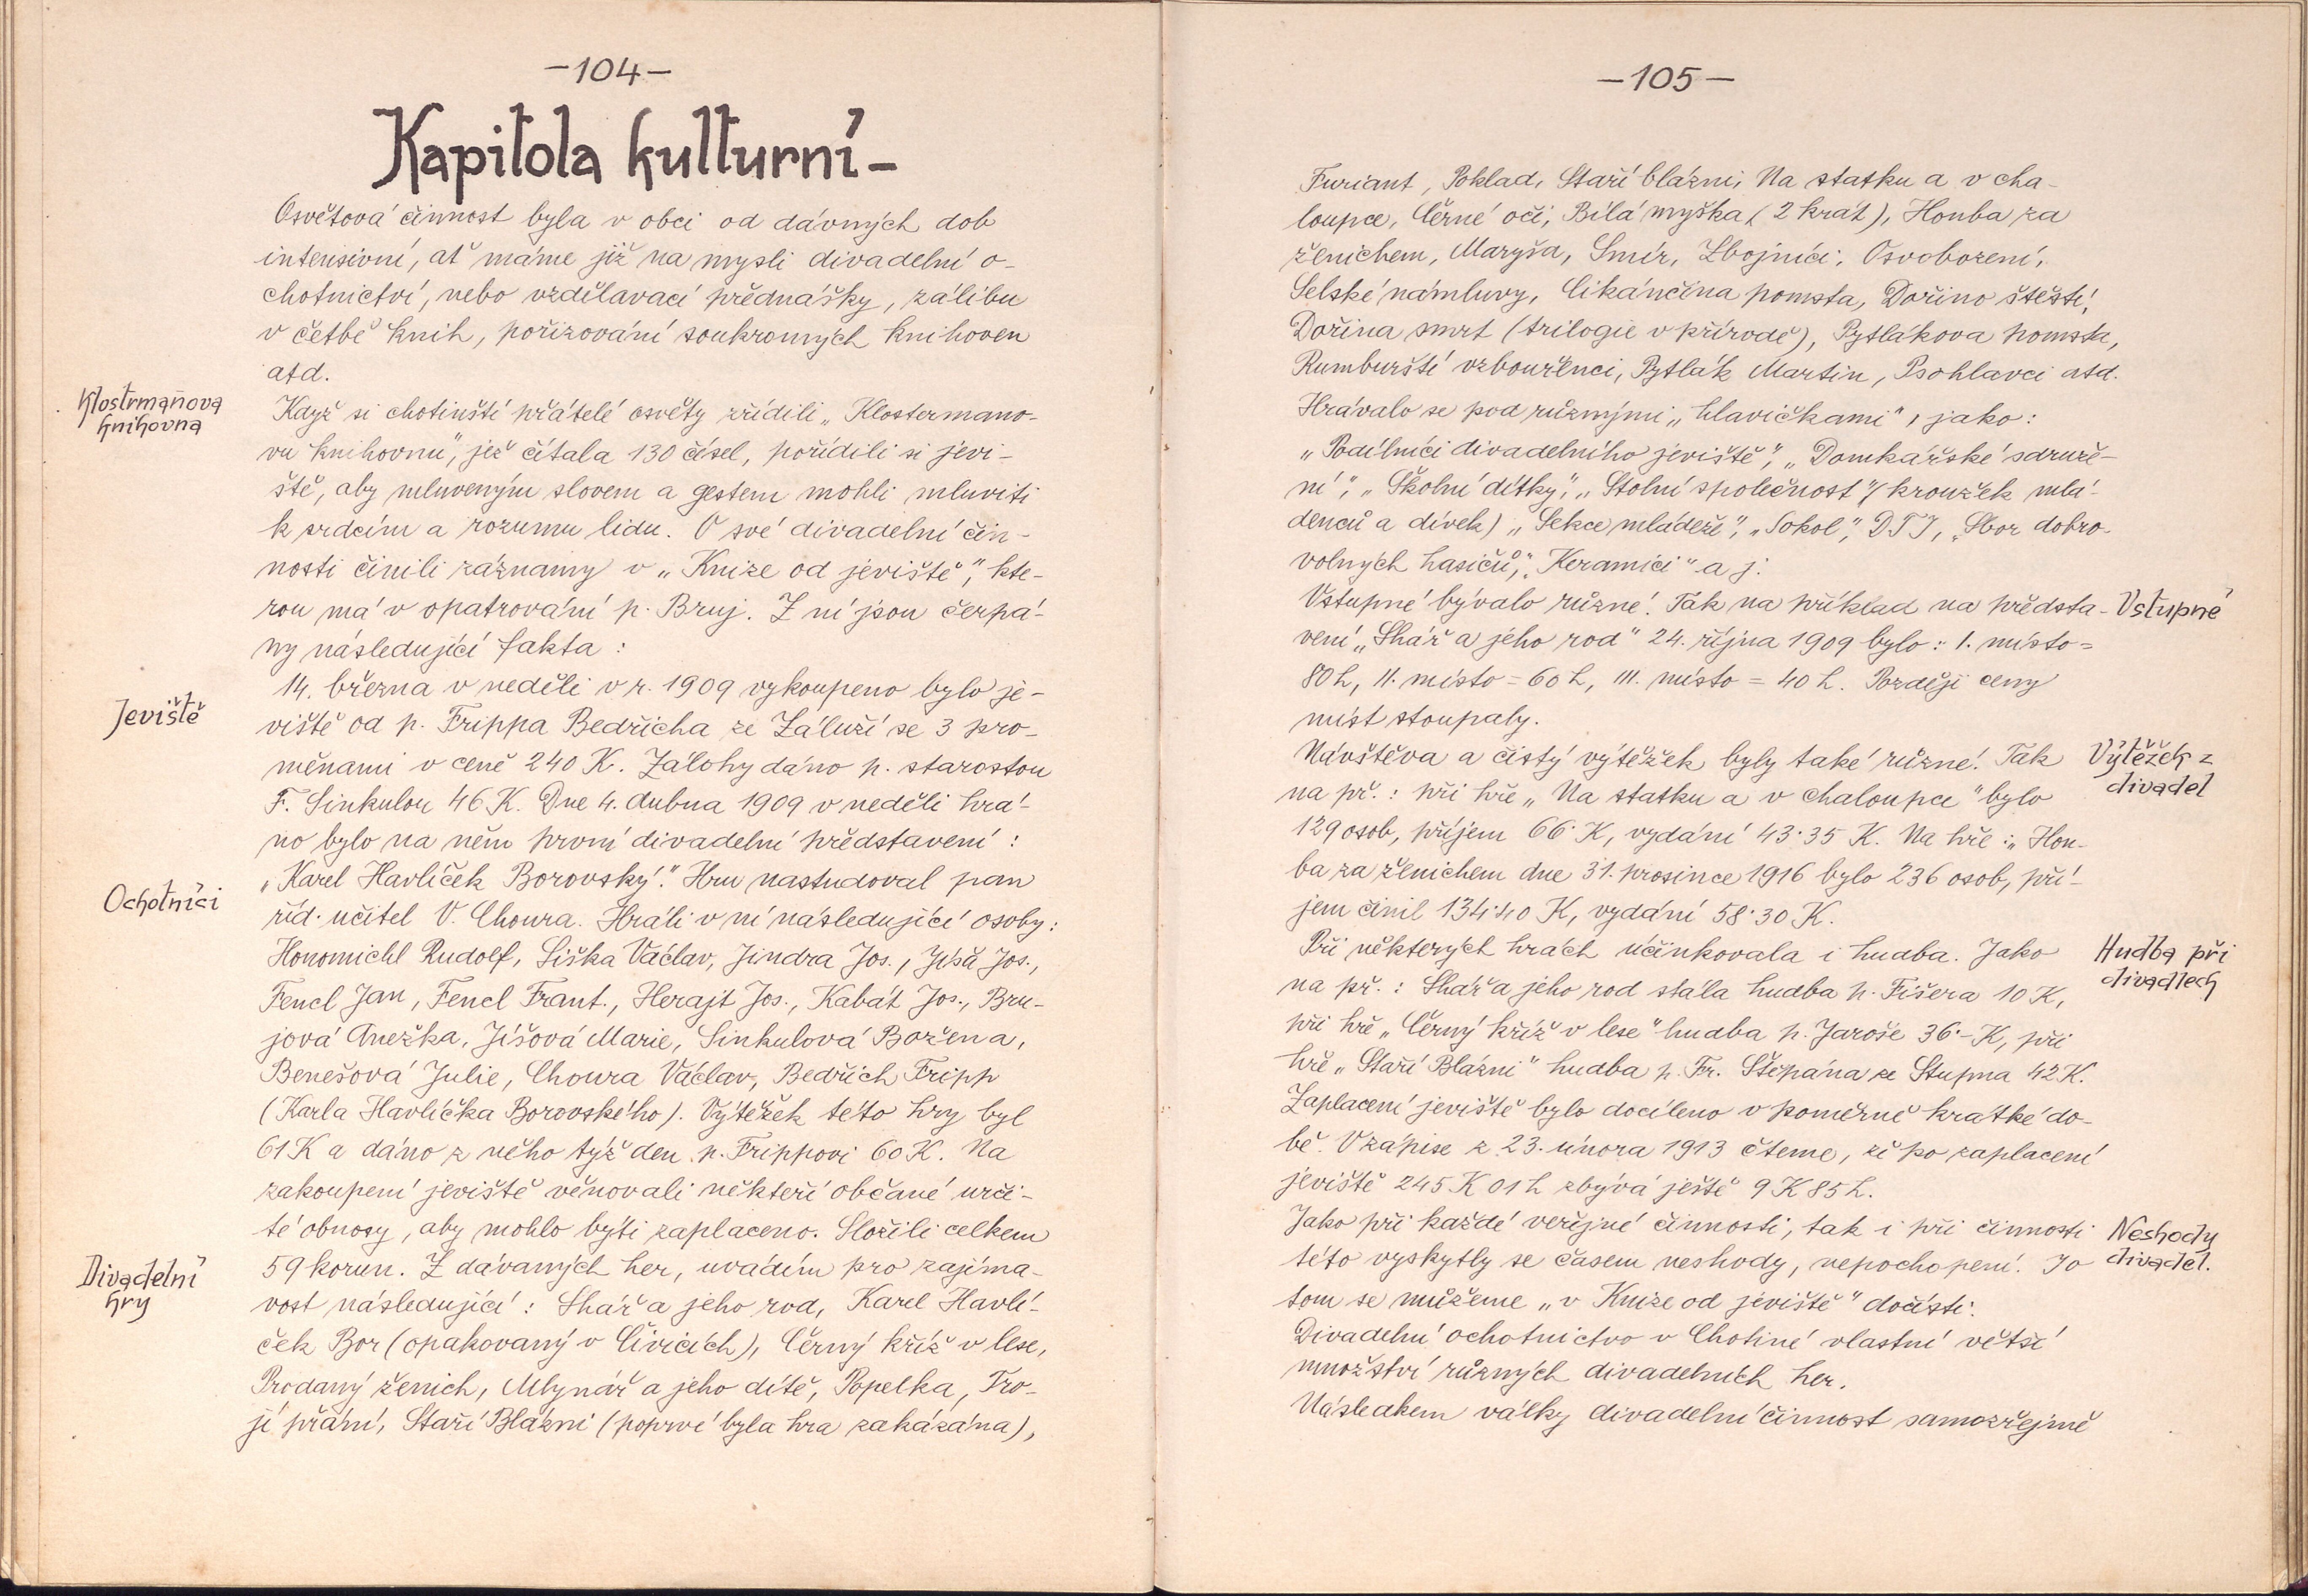 -104-
Kapitola kulturní-
Osvětová činnost byla v obci od dávných dob
intensivní, ať máme již na mysli divadelní o-
chotnictví, nebo vzdělavací přednášky, zálibu
v četbě knih, pořizování soukromých knihoven
atd.
Klostrmanova
knihovna
Když si chotinští přátelé osvěty zřídili „Klostermano-
vu knihovnu", jež čítala 130 čísel, pořídili si jevi-
ště, aby mluveným slovem a gestem mohli mluviti
k srdcím a rozumu lidu. O své divadelní čin-
nosti činili záznamy v „Knize od jeviště", kte-
rou má v opatrování p. Bruj. Z ní jsou čerpá-
ny následující fakta :
Jeviště
14. března v neděli v r. 1909 vykoupeno bylo je-
viště od p. Frippa Bedřicha ze Záluží se 3 pro-
měnami v ceně 240 K. Zálohy dáno p. starostou
F. Sinkulou 46 K. Dne 4. dubna 1909 v neděli hrá-
no bylo na něm první divadelní představení :
Ochotníci
„Karel Havlíček Borovský." Hru nastudoval pan
říd. učitel V. Choura. Hráli v ní následující osoby:
Honomichl Rudolf, Šiška Václav, Jindra Jos., Jíša Jos.,
Fencl Jan, Fencl Frant., Herajt Jos., Kabát Jos., Bru-
jová Anežka, Jíšová Marie, Sinkulová Božena,
Benešová Julie, Choura Václav, Bedřich Fripp
(Karla Havlíčka Borovského). Výtěžek této hry byl
61 K a dáno z něho týž den p. Frippovi 60 K. Na
zakoupení jeviště věnovali někteří občané urči-
té obnosy, aby mohlo býti zaplaceno. Složili celkem
Divadelní
hry
59 korun. Z dávaných her, uvádím pro zajíma-
vost následující : Lhář a jeho rod, Karel Havlí-
ček Bor (opakovaný v Čivicích), Černý kříž v lese,
Prodaný ženich, Mlynář a jeho dítě, Popelka, Tro-
jí přání, Staří Blázni (poprvé byla hra zakázána),
-105-
Furiant, Poklad, Staří blázni, Na statku a v cha-
loupce, Černé oči, Bílá myška (2 krát), Honba za
ženichem, Maryša, Smír, Zbojníci, Osvobození,
Selské námluvy, Cikánčina pomsta, Dořino štěstí,
Dořina smrt (trilogie v přírodě), Pytlákova pomsta,
Rumburští vzbouřenci, Pytlák Martin, Psohlavci atd.
Hrávalo se pod různými „hlavičkami", jako :
„Podílníci divadelního jeviště", „Domkářské sdruže-
ní", „Školní dítky", „Stolní společnost" (kroužek mlá-
denců a dívek) „Sekce mládeže", „Sokol", DTJ, „Sbor dobro-
volných hasičů", „Keramici" a j.
Vstupné bývalo různé. Tak na příklad na předsta-
Vstupné
vení „Lhář a jeho rod" 24. října 1909 bylo : 1. místo =
80 h, II. místo = 60 h, III. místo = 40 h. Později ceny
míst stoupaly.
Návštěva a čistý výtěžek byly také různé. Tak
Výtěžek z
divadel
na př. : při hře „Na statku a v chaloupce" bylo
129 osob, příjem 66· K, vydání 43·35 K. Na hře : „Hon-
ba za ženichem dne 31. prosince 1916 bylo 236 osob, pří-
jem činil 134·40 K, vydání 58·30 K.
Při některých hrách účinkovala i hudba. Jako
Hudba při
divadlech
na př. : Lhář a jeho rod stála hudba p. Fišera 10 K,
při hře „Černý kříž v lese" hudba p. Jaroše 36·- K, při
hře „Staří Blázni" hudba p. Fr. Štěpána ze Stupna 42 K.
Zaplacení jeviště bylo docíleno v poměrně krátké do-
bě. V zápise z 23. února 1913 čteme, že po zaplacení
jeviště 245 K 01 h zbývá ještě 9 K 85 h.
Jako při každé veřejné činnosti, tak i při činnosti
Neshody
divadel.
této vyskytly se časem neshody, nepochopení. I o
tom se můžeme „v Knize od jeviště" dočísti.
Divadelní ochotnictvo v Chotiné vlastní větší
množství různých divadelních her.
Následkem války divadelní činnost samozřejmě